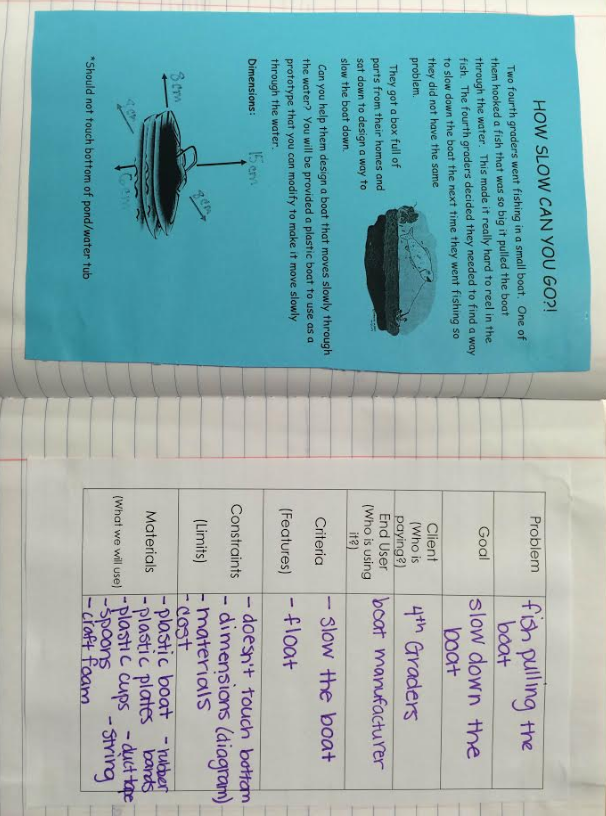 HOW SLOW CAN YOU GO?!
Two fourth graders went fishing in a small boat. One of
them hooked a fish that was so big it pulled the boat
through the water. This made it really hard to reel in the
fish. The fourth graders decided they needed to find a way
to slow down the boat the next time they went fishing so
they did not have the same
problem.
They got a box full of
parts from their homes and
sat down to design a way to
slow the boat down.
Can you help them design a boat that moves slowly through
the water? You will be provided a plastic boat to use as a
prototype that you can modify to make it move slowly
through the water.
Dimensions:
15 cm
8 cm
8 cm
*Should not touch bottom of pond/water tub
Problem
fish pulling the
boat
Goal
slow down the
boat
Client
(Who is
paying?)
4th Graders
End User
(Who is using
it?)
boat manufacturer
Criteria
(Features)
- slow the boat
- float
Constraints
(Limits)
- doesn't touch bottom
- dimensions (diagram)
- materials
- cost
Materials
(What we will use)
- plastic boat - rubber
bands
- plastic plates
- plastic cups - duct tape
- spoons - string
- craft foam